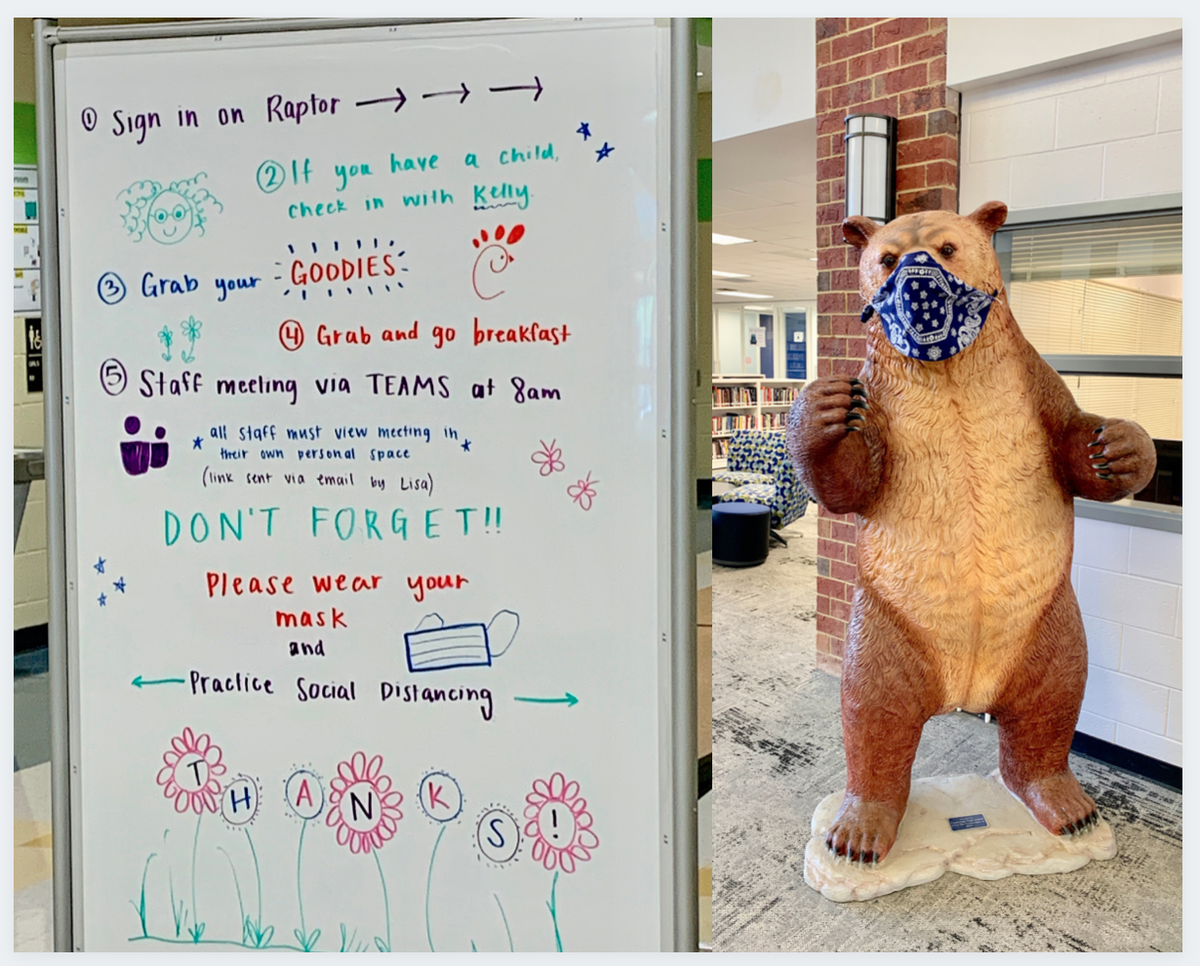 ① Sign in on Raptor → → →
② If you have a child,
check in with Kelly.
③ Grab your GOODIES
④ Grab and go breakfast
⑤ Staff meeting via TEAMS at 8am
* all staff must view meeting in *
their own personal space
(link sent via email by Lisa)
DON'T FORGET!!
Please wear your
mask
and
← Practice Social Distancing →
THANKS!